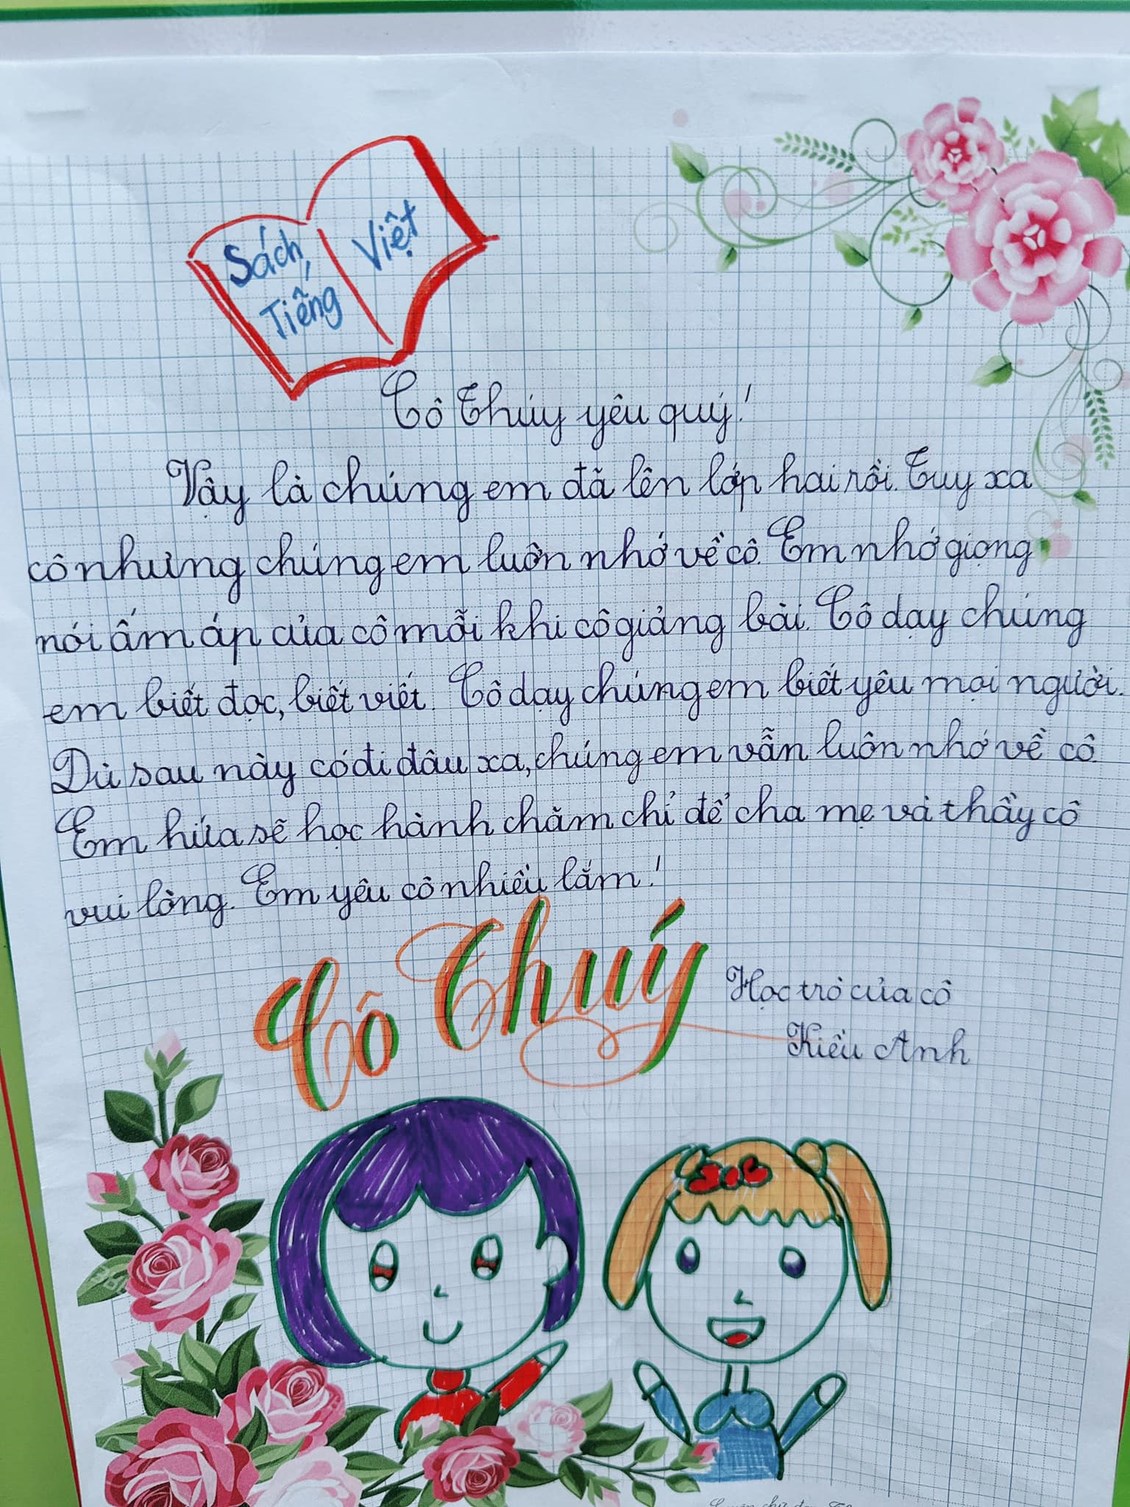 Sách
Tiếng
Việt
Cô Thúy yêu quý!
Vậy là chúng em đã lên lớp hai rồi. Tuy xa
cô nhưng chúng em luôn nhớ về cô. Em nhớ giọng
nói ấm áp của cô mỗi khi cô giảng bài. Cô dạy chúng
em biết đọc, biết viết. Cô dạy chúng em biết yêu mọi người.
Dù sau này có đi đâu xa, chúng em vẫn luôn nhớ về cô.
Em hứa sẽ học hành chăm chỉ để cha mẹ và thầy cô
vui lòng. Em yêu cô nhiều lắm!
Cô Thuý
Học trò của cô
Kiều Anh